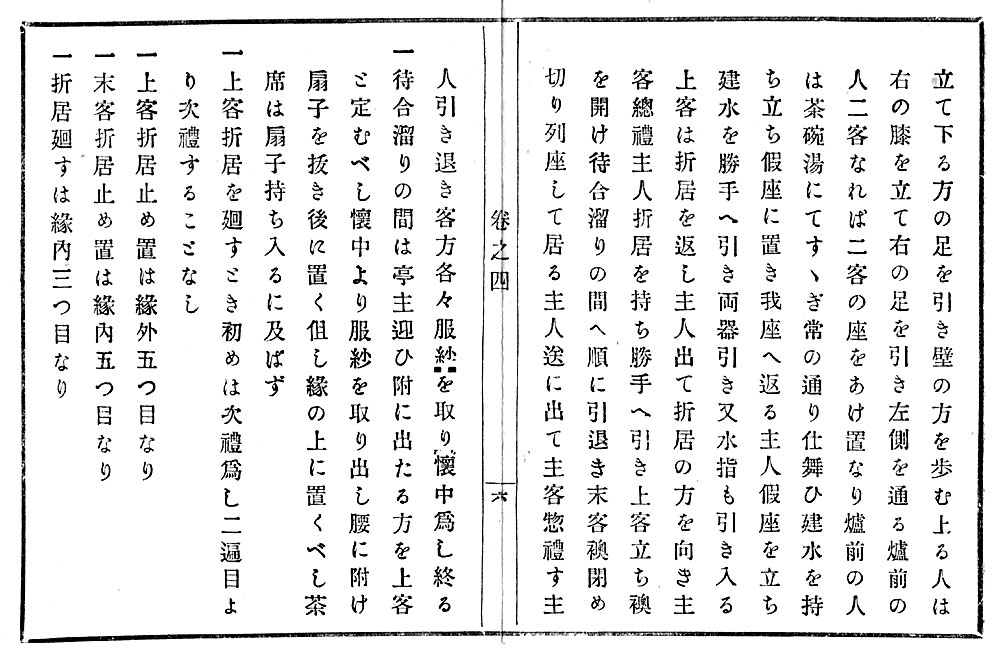 立て下る方の足を引き壁の方を歩む上る人は
右の膝を立て右の足を引き左側を通る爐前の
人二客なれば二客の座をあけ置なり爐前の人
は茶碗湯にてすヽぎ常の通り仕舞ひ建水を持
ち立ち假座に置き我座へ返る主人假座を立ち
建水を勝手へ引き両器引き又水指も引き入る
上客は折居を返し主人出て折居の方を向き主
客總禮主人折居を持ち勝手へ引き上客立ち襖
を開け待合溜りの間へ順に引退き末客襖閉め
切り列座して居る主人送に出て主客惣禮す主
卷之四
六
人引き退き客方各々服紗を取り懷中爲し終る
一待合溜りの間は亭主迎ひ附に出たる方を上客
と定むべし懷中より服紗を取り出し腰に附け
扇子を拔き後に置く但し緣の上に置くべし茶
席は扇子持ち入るに及ばず
一上客折居を廻すとき初めは次禮爲し二遍目よ
り次禮することなし
一上客折居止め置は緣外五つ目なり
一末客折居止め置は緣內五つ目なり
一折居廻すは緣內三つ目なり